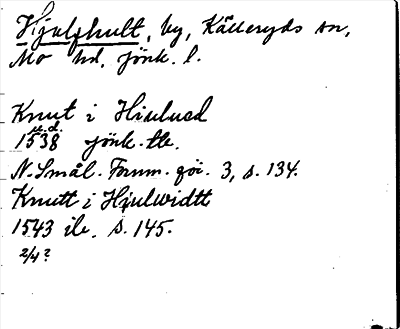 Hjulshult, by, Källeryds sn,
Mo hd, jönk. l.
Knut i Hiulued
1538 s.d. jönk. tle.
N. Smål. Fornm.för. 3, s. 134.
Knutt i Hjulwidtt
1543 ib. s. 145.
2/4?